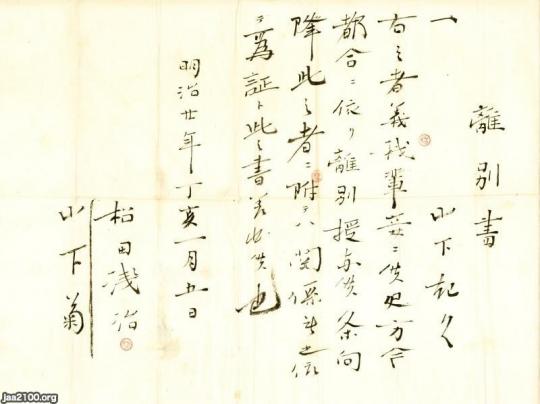 離別書
一 山下起久
右之者義我輩妻ニ候処方今
都合ニ依リ離別授与候条向
降此之者ニ附テハ関係無之依
之為証ト此之書差出候也
明治廿年丁亥一月五日
松田浅治
山下菊
jaa2100.org